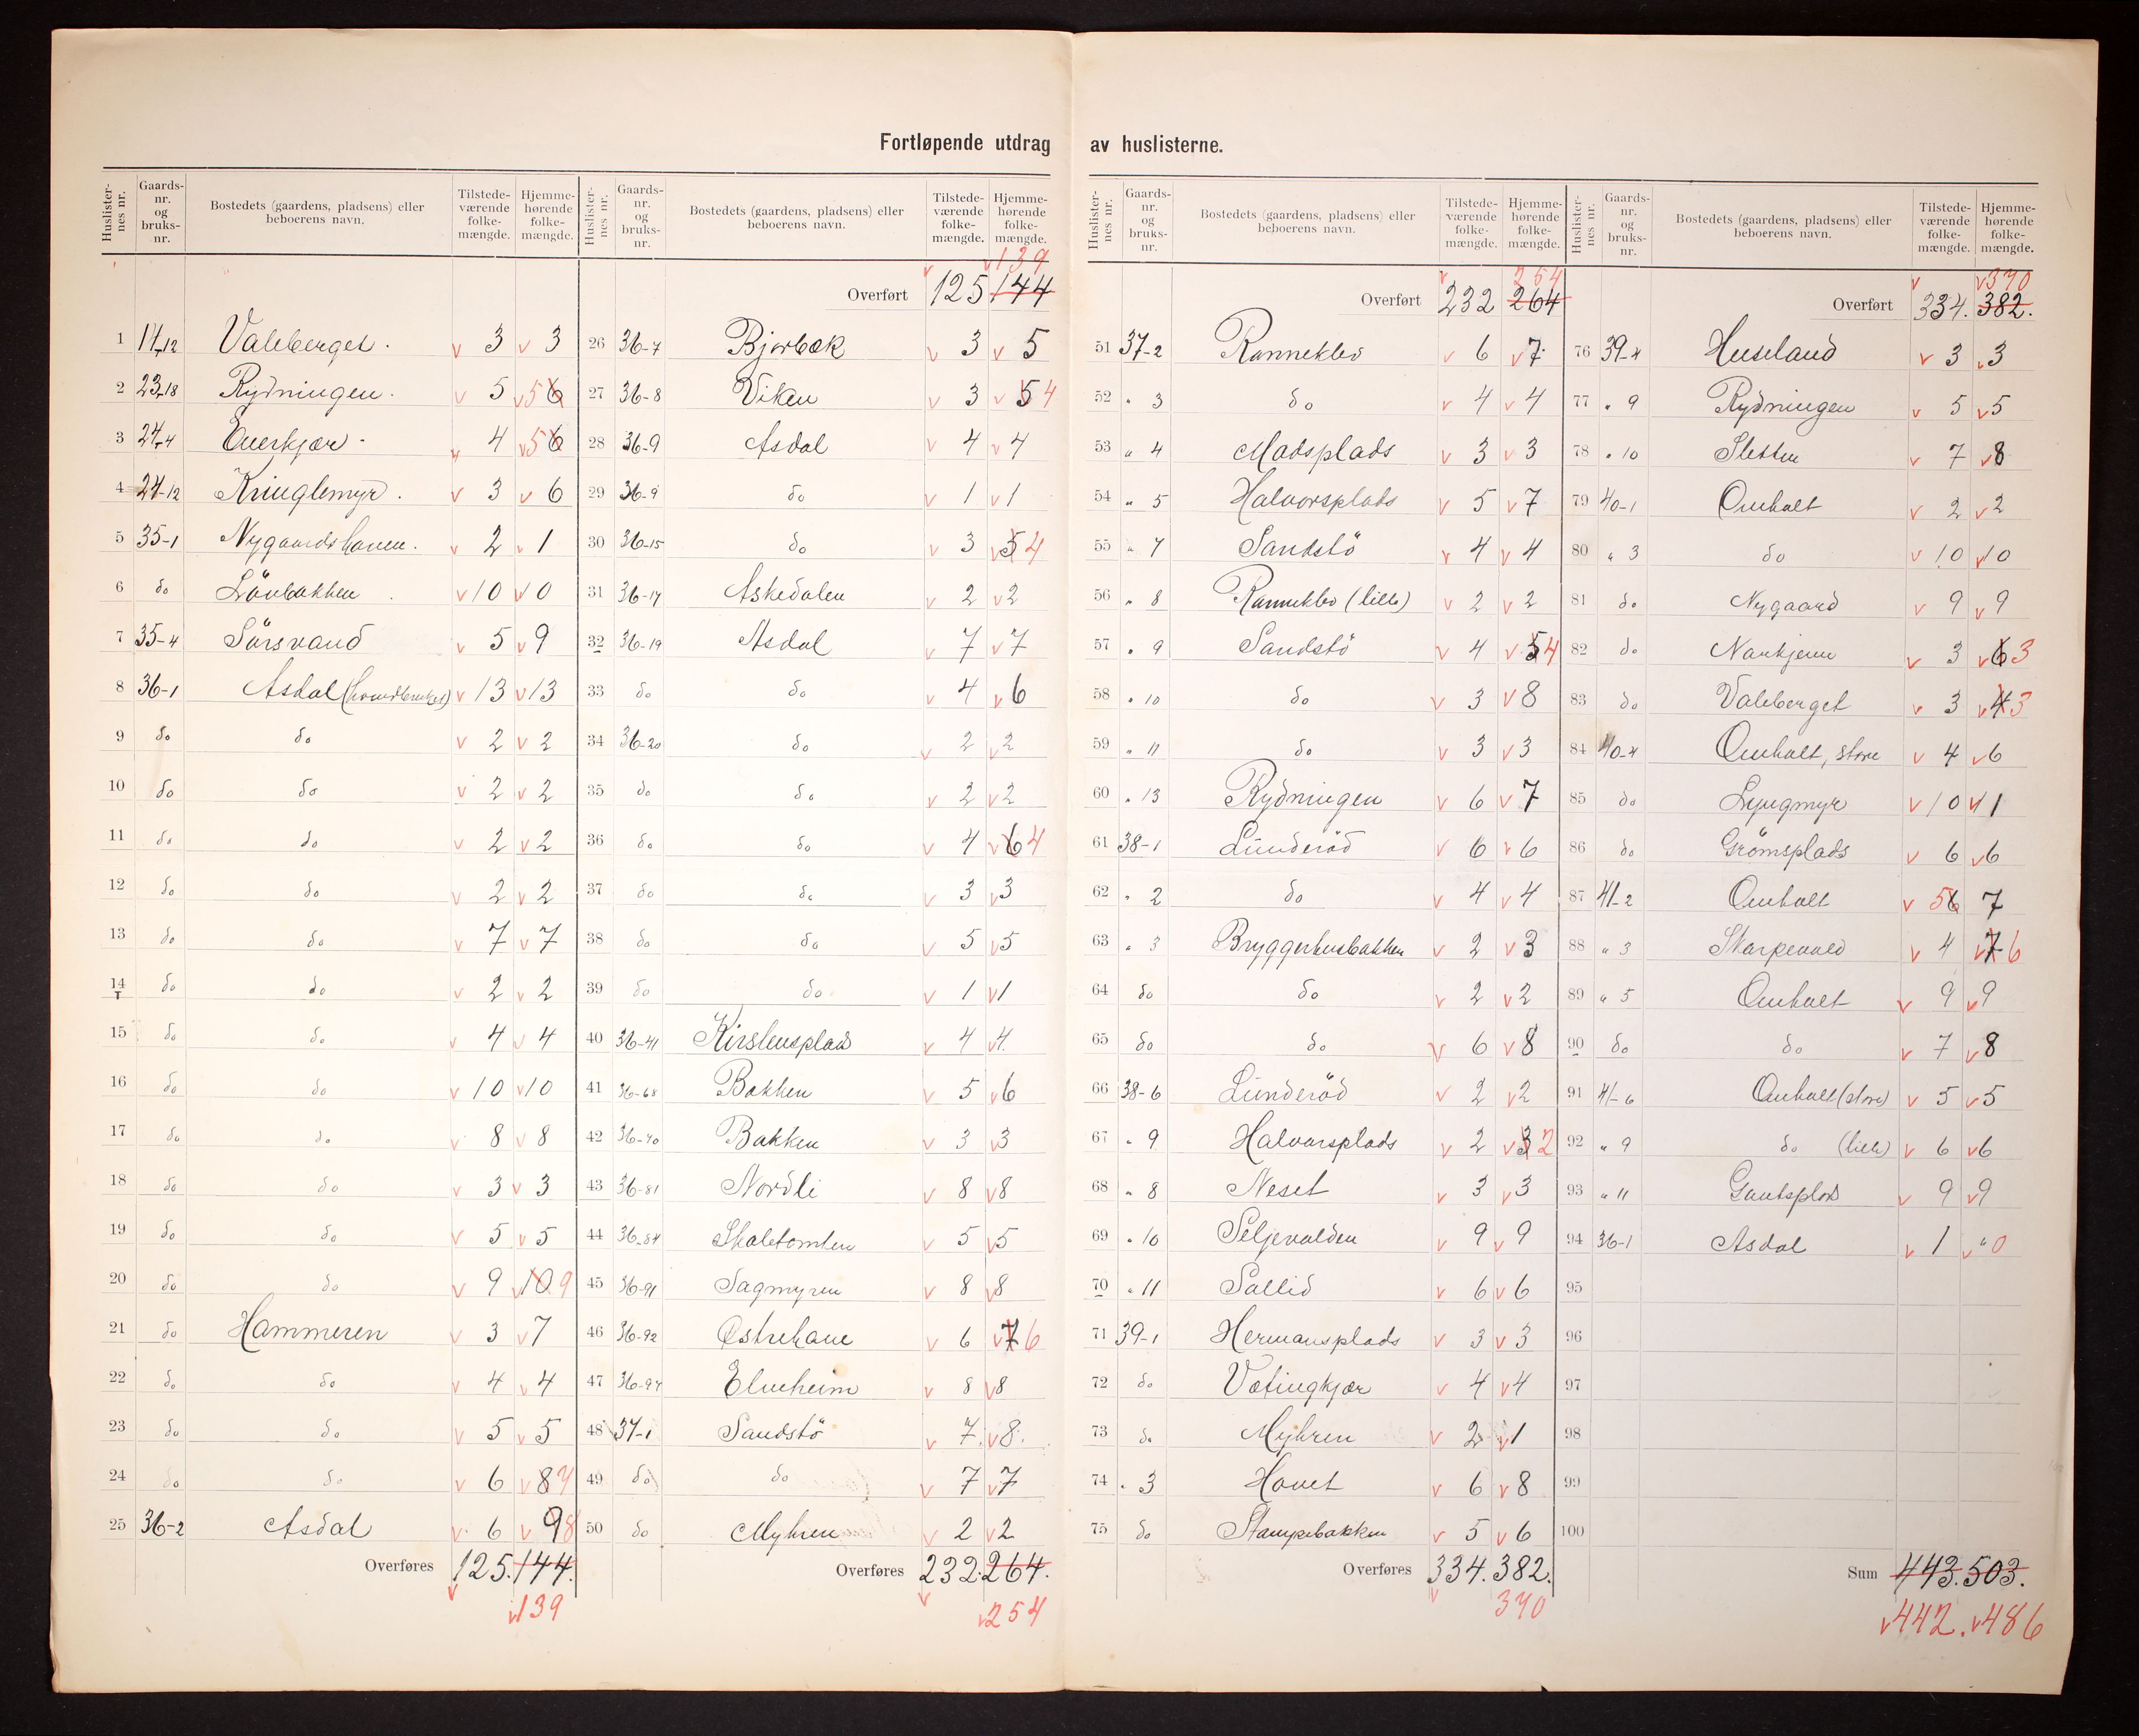 Fortløpende utdrag av huslisterne.
Huslister-nes nr. Gaards-nr. og bruks-nr. Bostedets (gaardens, pladsens) eller beboerens navn. Tilstede-værende folke-mængde. Hjemme-hørende folke-mængde.
1 14-12 Valeberget. 3 3
2 23-18 Rydningen. 5 5 6
3 24-4 4 5 6
4 24-12 Kringlemyr. 3 6
5 35-1 Nygaardshaven. 2 1
6 do Lövbakken. 10 10
7 35-4 Sörsvand 5 9
8 36-1 Asdal (hovedbruket) 13 13
9 do do 2 2
10 do do 2 2
11 do do 2 2
12 do do 2 2
13 do do 7 7
14 do do 2 2
15 do do 4 4
16 do do 10 10
17 do do 8 8
18 do do 3 3
19 do do 5 5
20 do do 9 10 9
21 do Hammeren 3 7
22 do do 4 4
23 do do 5 5
24 do do 6 8 7
25 36-2 Asdal 6 9 8
Overføres 125. 144.
139
Huslister-nes nr. Gaards-nr. og bruks-nr. Bostedets (gaardens, pladsens) eller beboerens navn. Tilstede-værende folke-mængde. Hjemme-hørende folke-mængde.
139
Overført 125 144
26 36-7 Bjorbæk 3 5
27 36-8 Viken 3 5 4
28 36-9 Asdal 4 4
29 36-9 do 1 1
30 36-15 do 3 5 4
31 36-17 Askedalen 2 2
32 36-19 Asdal 7 7
33 do do 4 6
34 36-20 do 2 2
35 do do 2 2
36 do do 4 6 4
37 do do 3 3
38 do do 5 5
39 do do 1 1
40 36-41 Kirstensplads 4 4
41 36-68 Bakken 5 6
42 36-70 Bakken 3 3
43 36-81 Nordli 8 8
44 36-84 Skoletomten 5 5
45 36-91 Sagmyren 8 8
46 36-92 Østrehave 6 7 6
47 36-94 Elveheim 8 8
48 37-1 Sandstö 7. 8.
49 do do 7 7
50 do Myhren 2 2
Overføres 232. 264.
254
Huslister-nes nr. Gaards-nr. og bruks-nr. Bostedets (gaardens, pladsens) eller beboerens navn. Tilstede-værende folke-mængde. Hjemme-hørende folke-mængde.
254
Overført 232 264
51 37-2 Ranneklev 6 7
52 " 3 do 4 4
53 " 4 Madsplads 3 3
54 " 5 Halvorsplads 5 7
55 " 7 Sandstö 4 4
56 " 8 Ranneklev (lille) 2 2
57 " 9 Sandstö 4 5 4
58 " 10 do 3 8
59 " 11 do 3 3
60 " 13 Rydningen 6 7
61 38-1 Lunderöd 6 6
62 " 2 do 4 4
63 " 3 Bryggerhusbakken 2 3
64 do do 2 2
65 do do 6 8
66 38-6 Lunderöd 2 2
67 " 9 Halvorsplads 2 3 2
68 " 8 Neset 3 3
69 " 10 Seljevolden 9 9
70 " 11 Sollid 6 6
71 39-1 Hermansplads 3 3
72 do Vætingkjær 4 4
73 do Myhren 2 1
74 " 3 Hovet 6 8
75 do Stampebakken 5 6
Overføres 334. 382.
370
Huslister-nes nr. Gaards-nr. og bruks-nr. Bostedets (gaardens, pladsens) eller beboerens navn. Tilstede-værende folke-mængde. Hjemme-hørende folke-mængde.
370
Overført 334. 382.
76 39-4 Huseland 3 3
77 " 9 Rydningen 5 5
78 " 10 Sletten 7 8
79 40-1 Omholt 2 2
80 " 3 do 10 10
81 do Nygaard 9 9
82 do 3 6 3
83 do Valeberget 3 4 3
84 40-4 Omholt, store 4 6
85 do Lyngmyr 10 11
86 do Grömsplads 6 6
87 41-2 Omholt 5 6 7
88 " 3 Skarpevold 4 7 6
89 " 5 Omholt 9 9
90 do do 7 8
91 41-6 Omholt (store) 5 5
92 " 9 do (lille) 6 6
93 " 11 9 9
94 36-1 Asdal 1 " 0
95
96
97
98
99
100
Sum 443. 503.
442. 486